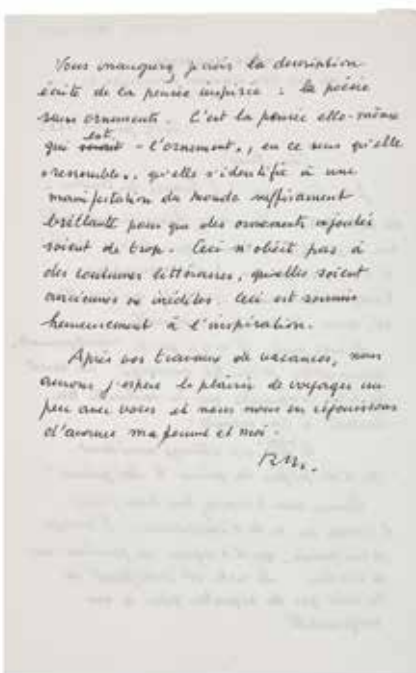 Vous manquez, je crois la description
écrite de la pensée inspirée : la poésie
sans ornements. C'est la pensée elle-même
est
qui - l'ornement., en ce sens qu'elle
ressemble., qu'elle s'identifie à une
manifestation du monde suffisamment
brillante pour que des ornements ajoutés
soient de trop. Ceci n'obéit pas à
des coutumes littéraires, qu'elles soient
anciennes ou inédites. Ceci est soumis
heureusement à l'inspiration.
Après vos travaux de vacances, nous
aurons j'espère le plaisir de voyager un
peu avec vous et nous nous en réjouissons
d'avance ma femme et moi.
RM.